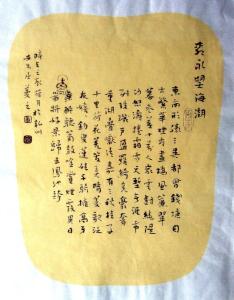 柳永望海潮
東南形勝三吳都會錢塘自
古繁華煙柳畫橋風簾翠
幕參差十萬人家雲樹繞隄
沙怒濤捲霜雪天塹無涯市
列珠璣戶盈羅綺競豪奢
重湖疊巘清嘉有三秋桂子
十里荷花羌管弄晴菱歌泛
夜嬉嬉釣叟蓮娃千騎擁高牙
乘醉聽簫鼓吟賞煙霞異日
圖將好景歸去鳳池誇